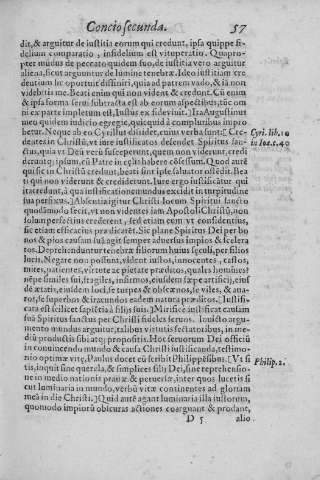 Concio secunda. 57
dit, & arguitur de iustitia eorum qui credunt, ipsa quippe fi-
delium comparatio, infidelium est vituperatio. Quapro-
pter mũdus de peccato quidem suo, de iustitia vero arguitur
aliena, sicut arguuntur de lumine tenebræ. Ideo iustitiam cre
dentium hic oportuit diffiniri, quia ad patrem vado, & iã non
videbitis me. Beati enim qui non vident & credunt. Cũ enim
& ipsa forma serui subtracta est ab eorum aspectibus, tũc om
ni ex parte impletum est, Iustus ex fide viuit.] Ita Augustinus
meo quidem iudicio egregie, quicquid à complutibus impro
betur. Neque ab eo Cyrillus dissidet, cuius verba sunt: [Cre-
dentes in Christũ, vt iure iustificatos defendet Spiritus san-
ctus, quia vt Dei verũ susceperunt, quem non viderunt, credi
derunt q; ipsum, cũ Patre in cęlis habere cõsessum. Quod autẽ
qui sic in Christũ credunt, beati sint ipse saluator ostẽdit. Bea
ti qui non viderunt & crediderunt. Iure ergo iustificatur qui
ita credunt, à qua iustificatione mundus excidit in turpitudine
sua perficax.] Absentia igitur Christi locum Spiritui sancto
quodãmodo fecit, vt non videntes iam Apostoli Christũ, non
solum perfectius crederent, sed etiam eum vt considentius,
sic etiam efficacius prædicarẽt. Sic plane Spiritus Dei per bo
nos & pios causam suã agit semper aduersus impios & scelera
tos. Deprehenduntur tenebræ filiorum huius sęculi, per filios
lucis. Negare non possunt, vidẽnt iustos, innocentes, castos,
mites, patientes, virtute ac pietate præditos, quales homines?
nẽpe similes sui, fragiles, infirmos, eiusdem sæpe artificij, eius
dẽ ætatis, eiusdem loci, se turpes & obscænos, se viles, & ama-
ros, se superbos & iracundos eadem natura præditos. [Iustifi-
cata est scilicet sapiẽtia à filijs suis.] Mirifice iustificat causam
suã Spiritus sanctus per Christi fideles seruos. Inuicto argu-
mento mundus arguitur, talibus virtutis sectatoribus, in me-
diũ productis sibi atq; propositis. Hoc seruorum Dei officiũ
in conuincendo mundo & causa Christi iustificanda, testimo-
nio optimæ vitę, Paulus docet cũ scribit Philippẽsibus. [Vt si
tis, inquit sine querela, & simplices filij Dei, sine reprehensio-
ne in medio nationis prauæ & peruersæ, inter quos lucetis si
cut luminaria in mundo, verbũ vitæ continentes ad gloriam
meã in die Christi.] Quid autẽ agant luminaria illa iustorum,
quonodo impiorũ obscuras actiones coarguant & prodant,
D 5 alio
Cyri. lib. 10
in Ioa. c. 40
Philip. 2.